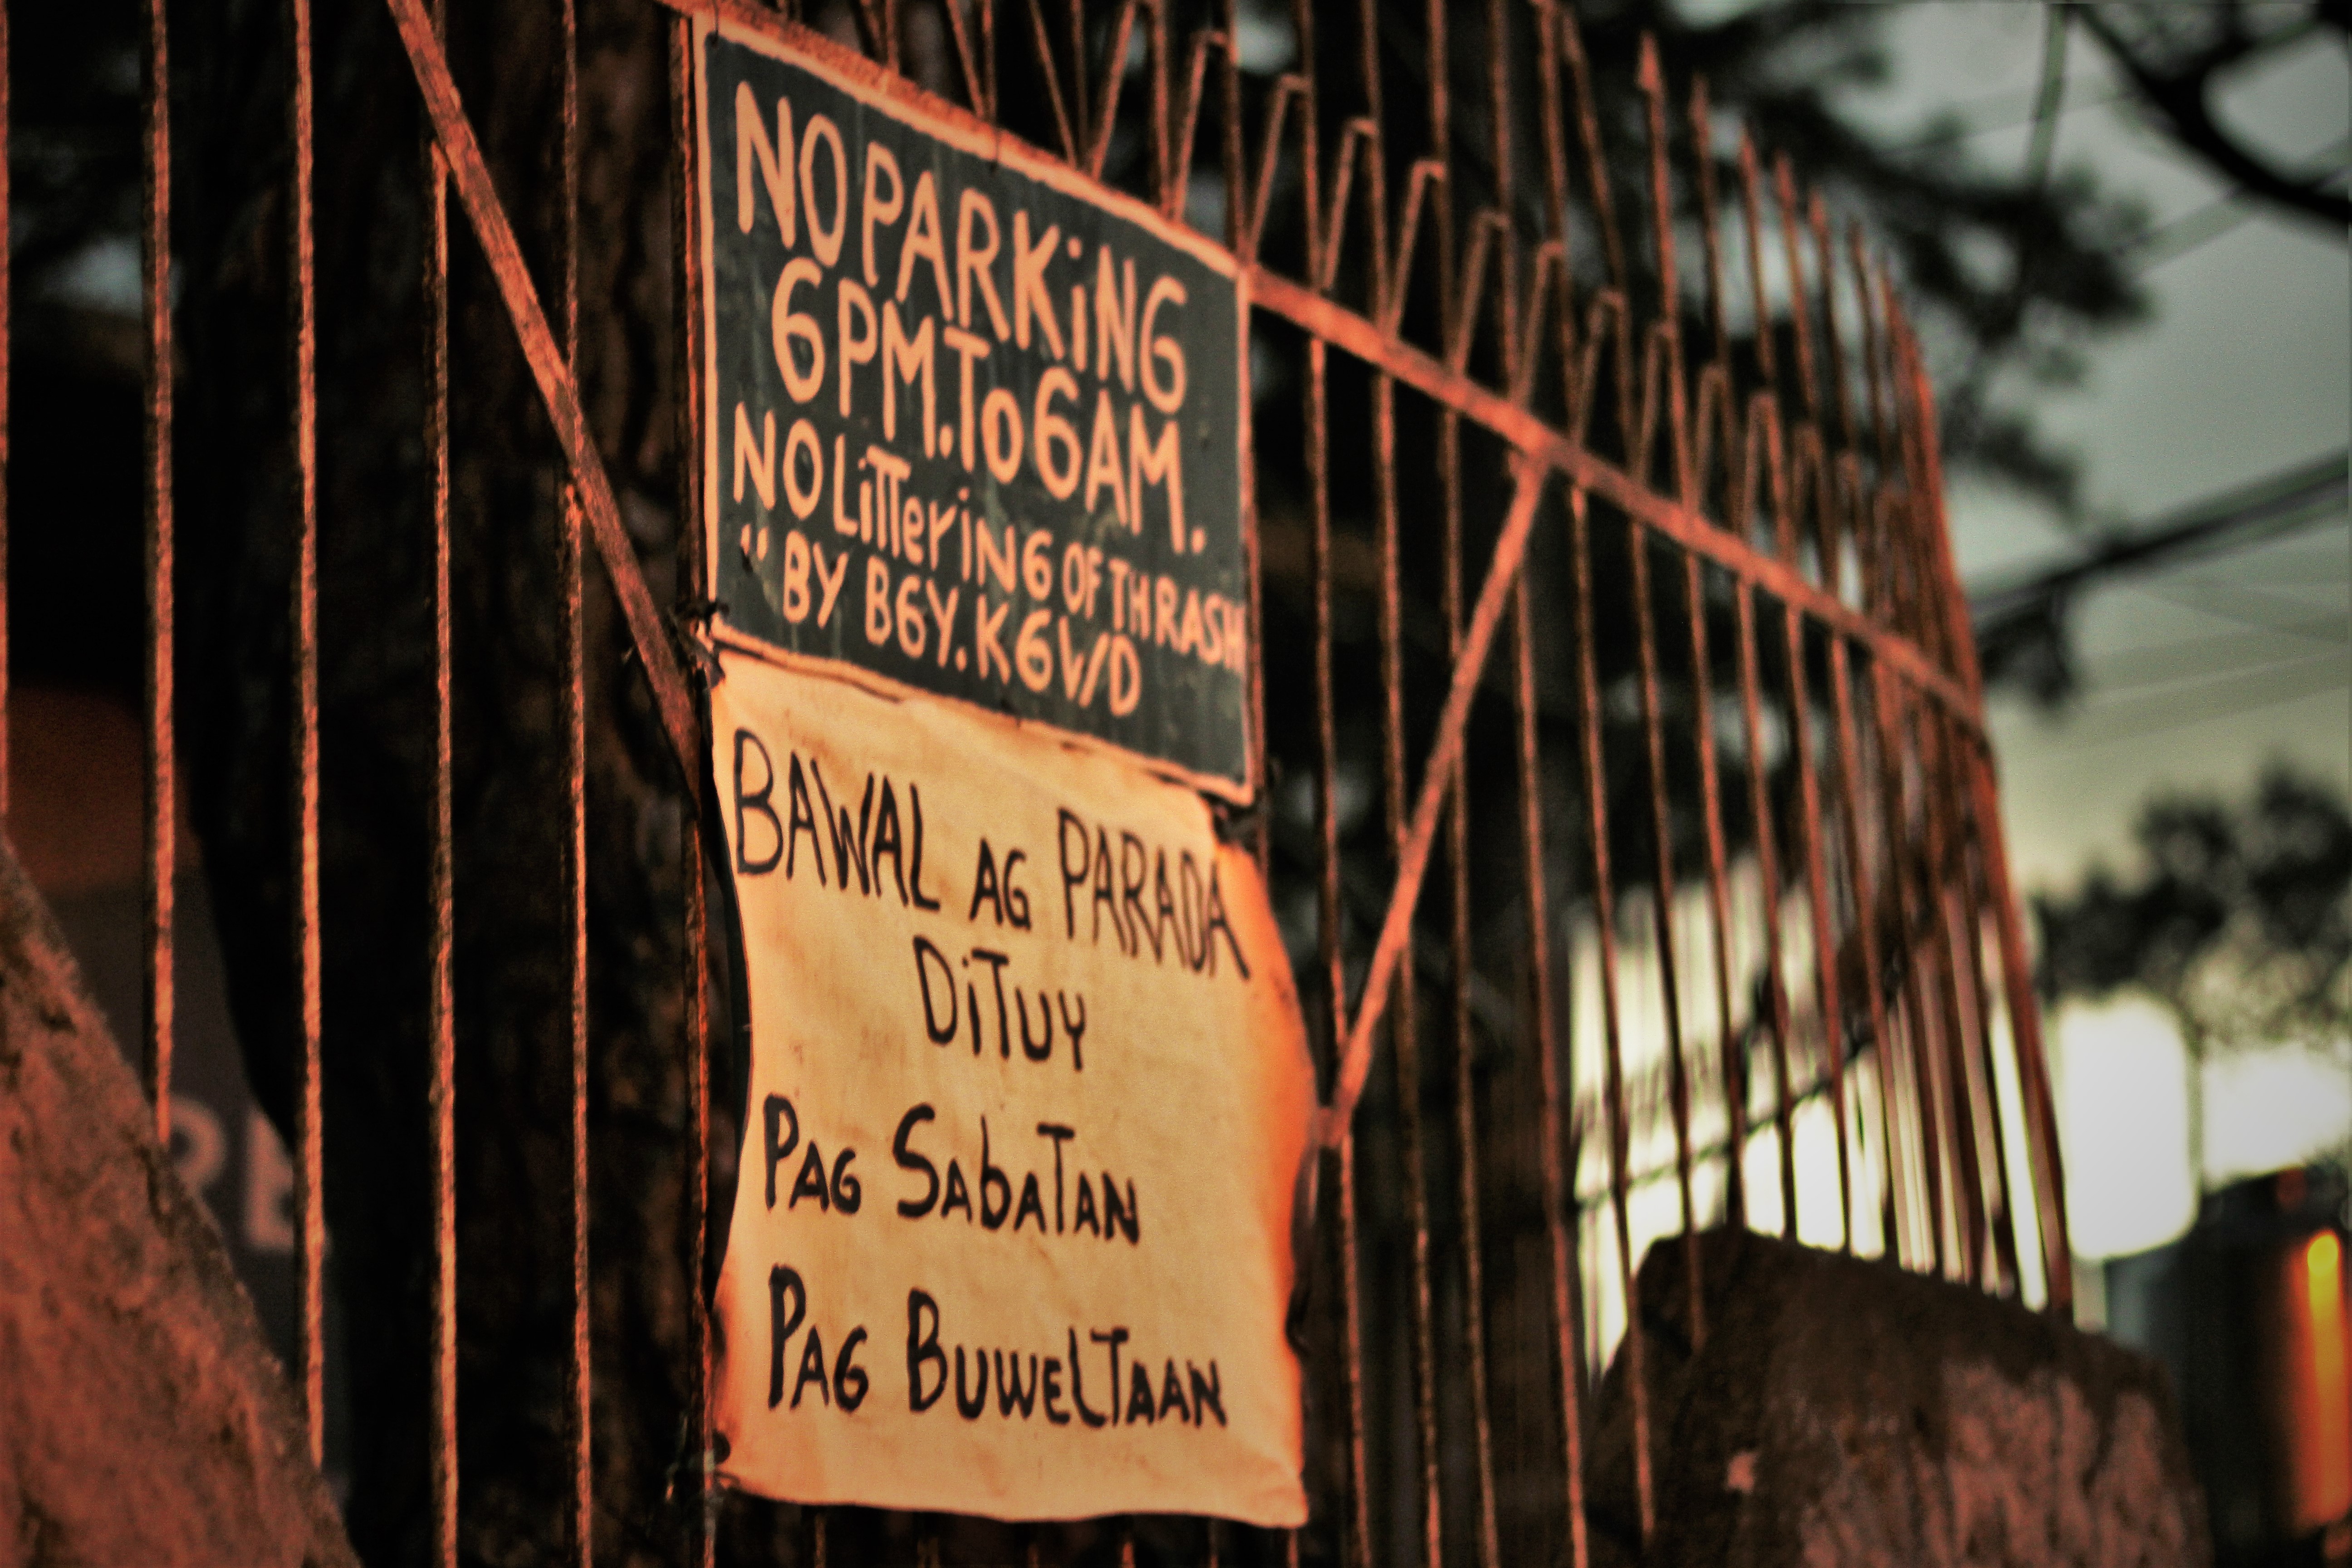 NO PARKiNG
6 PM. To 6 AM.
NO LiTTeriNG OF THRASH
" BY BGY. KGWD
BAWAL AG PARADA
DiTUY
PAG SAbATAN
PAG BUWELTAAN